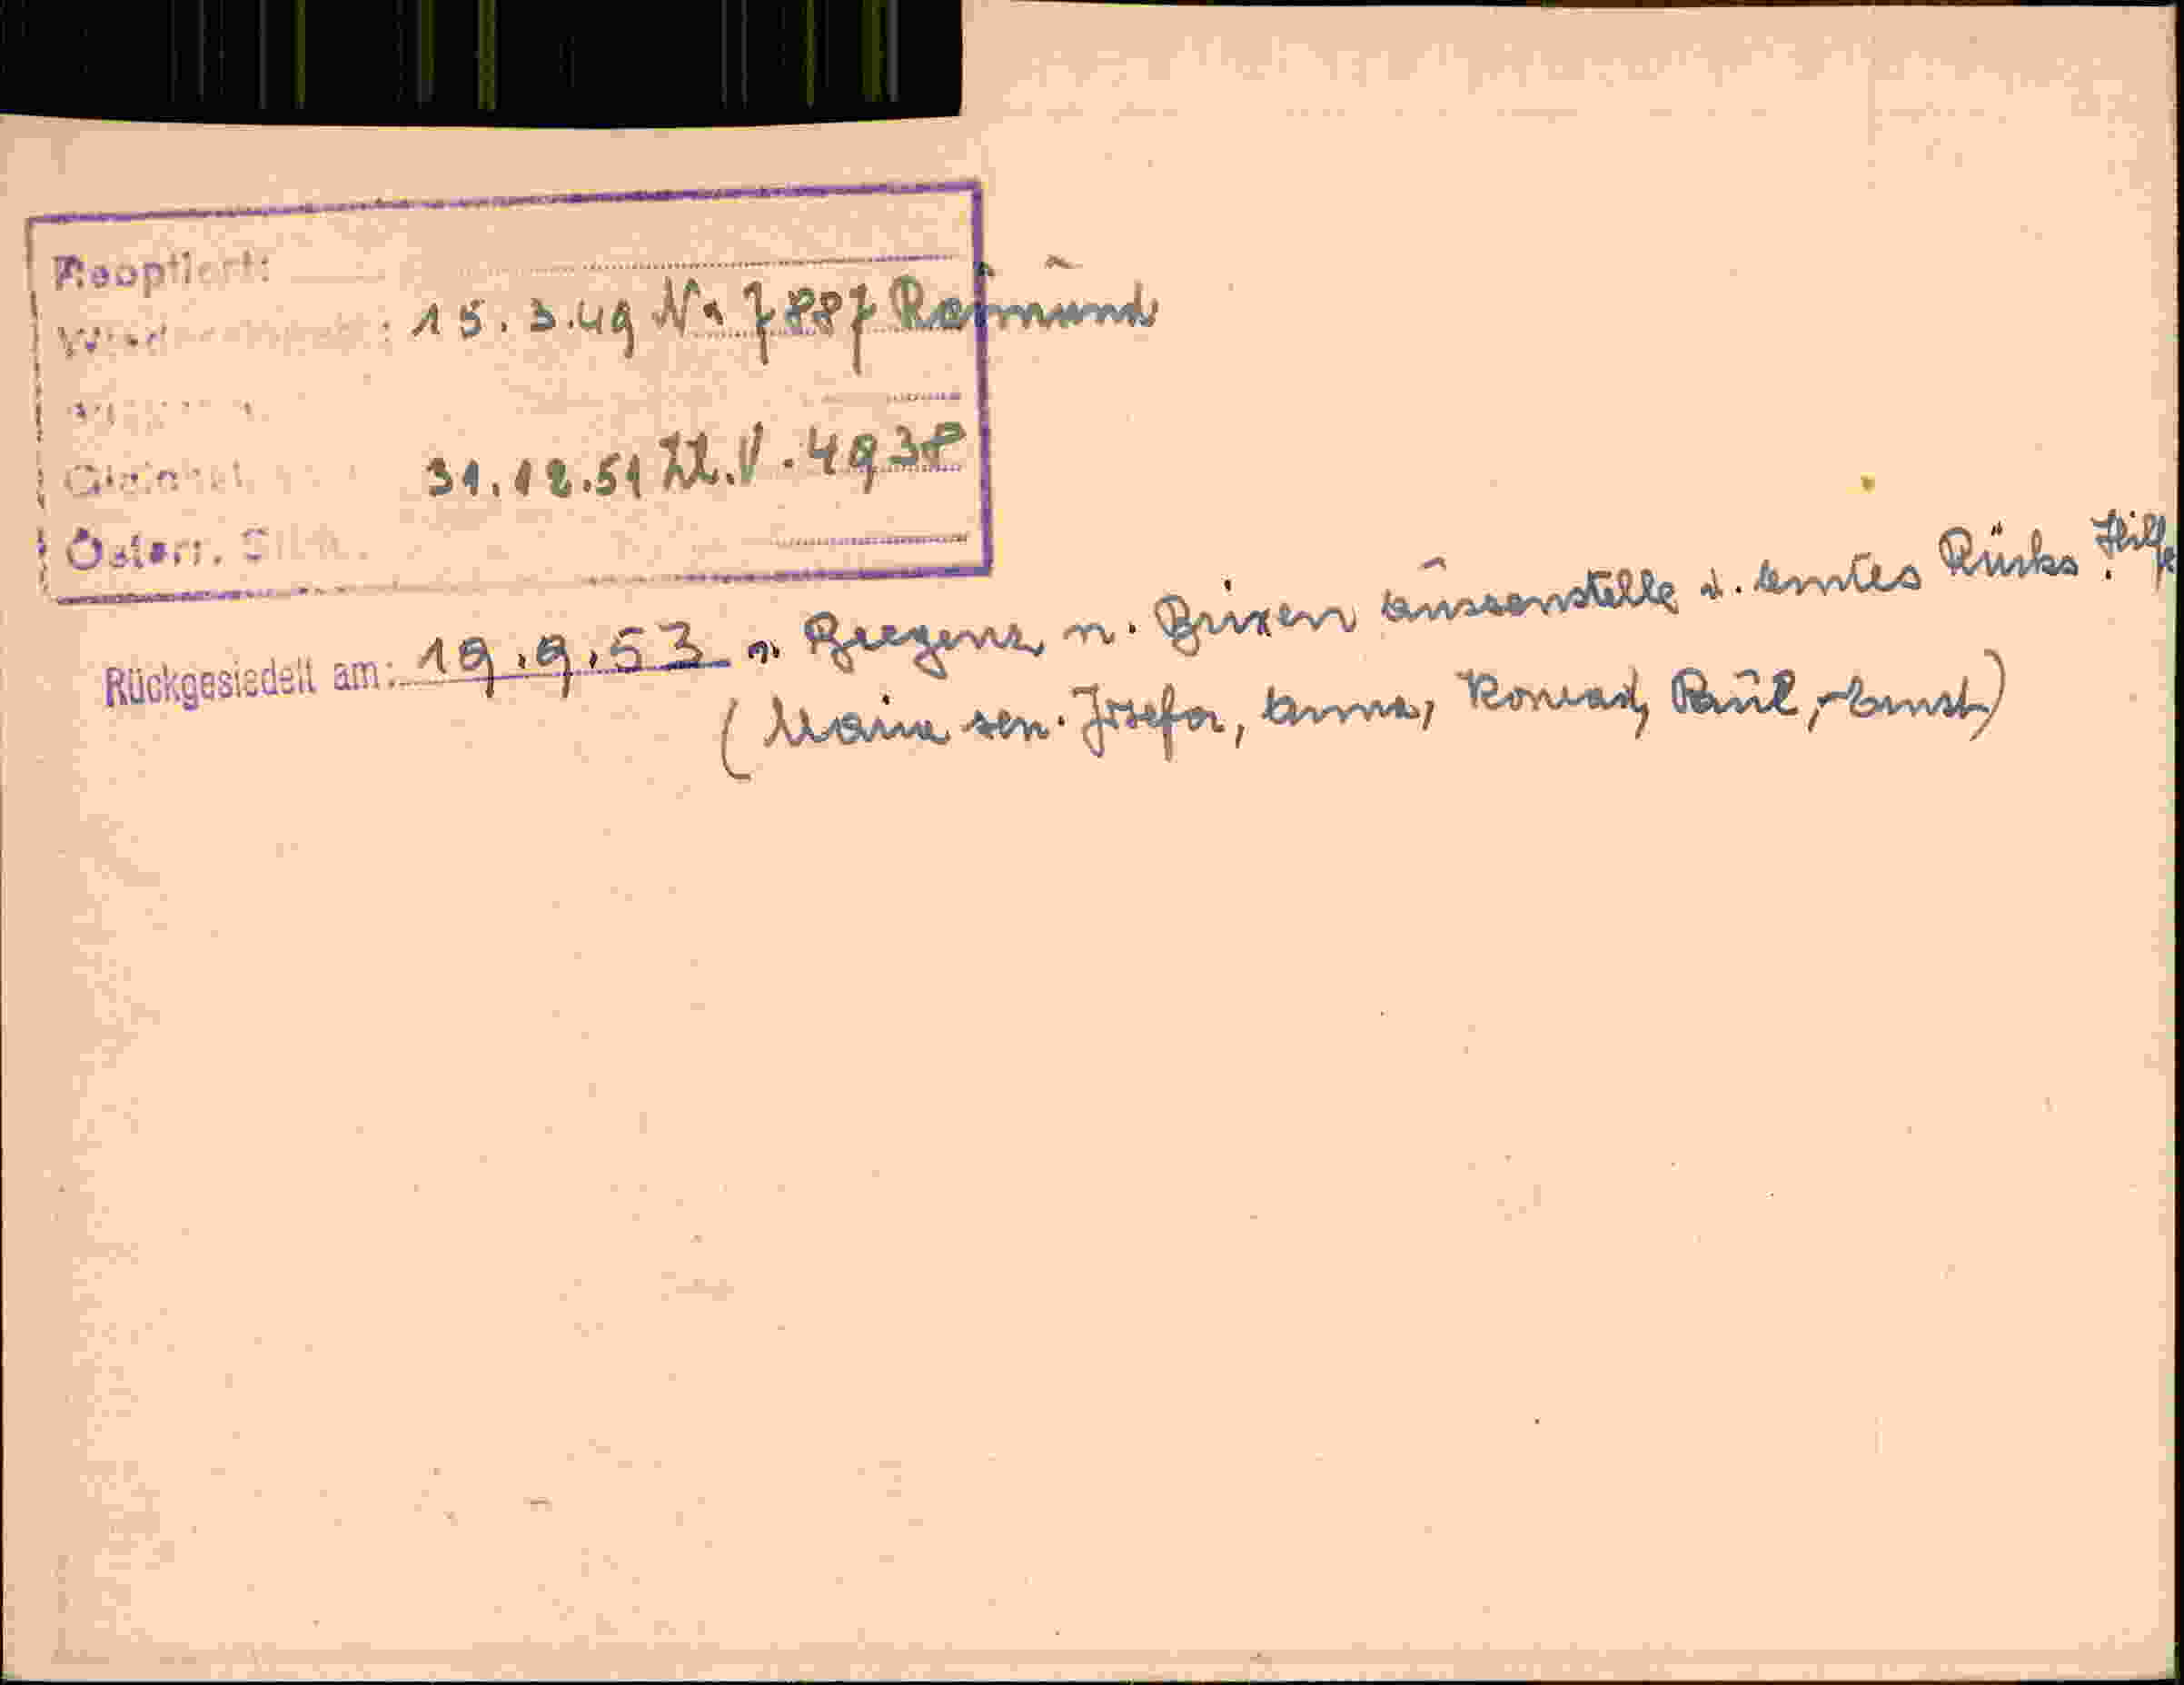 Reoptiert:
: 15.3.49 No 7887 Raimund
31.12.51 Zl.V.4938
Österr.
Rückgesiedelt am: 19.9.53 v. Bregenz n. Brixen Aussenstelle d. Amtes Rücks. Hilfe
(Maria sen. Josefa, Anna, Konrad, Paul, Ernst)